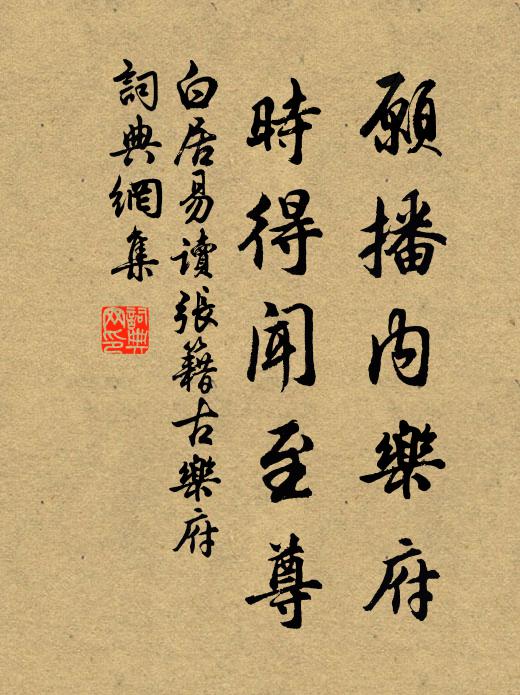 願播内樂府
時得聞至尊
白居易讀張籍古樂府
詞典網集
詞典网印